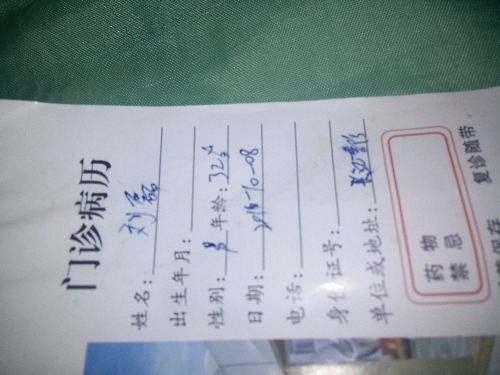 门诊病历
姓名：刘磊
出生年月：
性别：男 年龄：32岁
日期：2016-10-08
电话：
身份证号：
单位或地址：
药物
禁忌
复诊随带